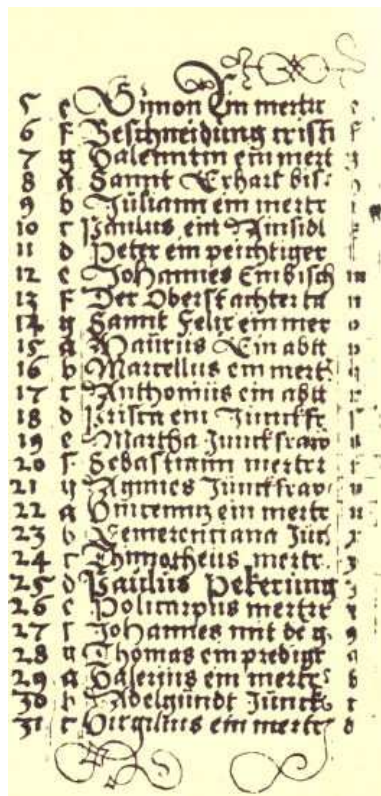 5 e Simon Ein mertrer e
6 f Beschneidung cristi f
7 g Valentin ein mert g
8 a Sannt Erhart bis:
9 b Juliann ein mertr
10 c Paulus ein Ainsidl
11 d Peter ein peichtiger l
12 e Johannes Ein bisch m
13 f Der Oberst achter ta n
14 g Sannt Felix ein mer o
15 a Maurus Ein abtt p
16 b Marcellus ein mert q
17 c Anthonius ein abtt r
18 d Prisca ein Junckfr s
19 e Martha Junckfraw
20 f Sebastiann mertrer t
21 g Agnnes Junckfraw
22 a Vincennz ein mertr
23 b Emerenciana Jun
24 c Thimotheus mertr
25 d Paulus Pekerung
26 e Policarpus mertrer
27 f Johannes mit de g
28 g Thomas ein predigr a
29 a Valerius ein mertr b
30 b Adelgundt Junck c
31 c Virgilius ein mertr d